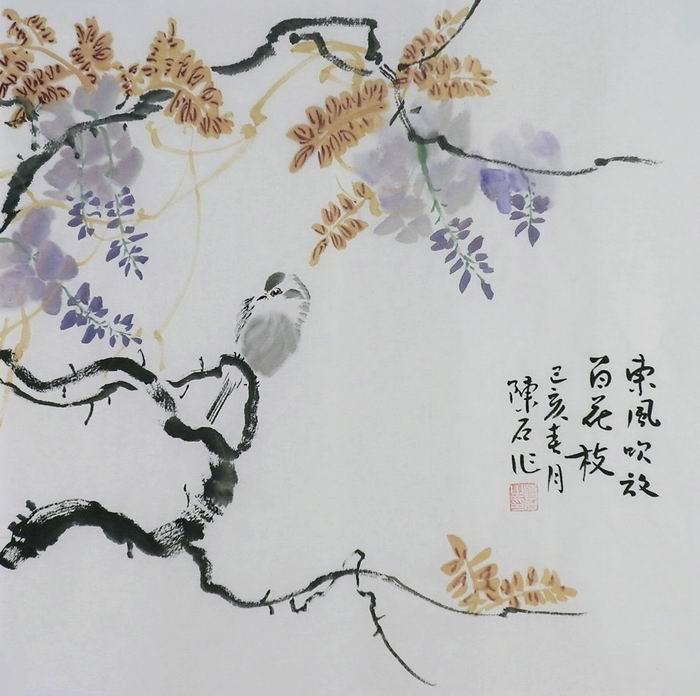 東風吹放
百花枝
己亥春月
陳石作